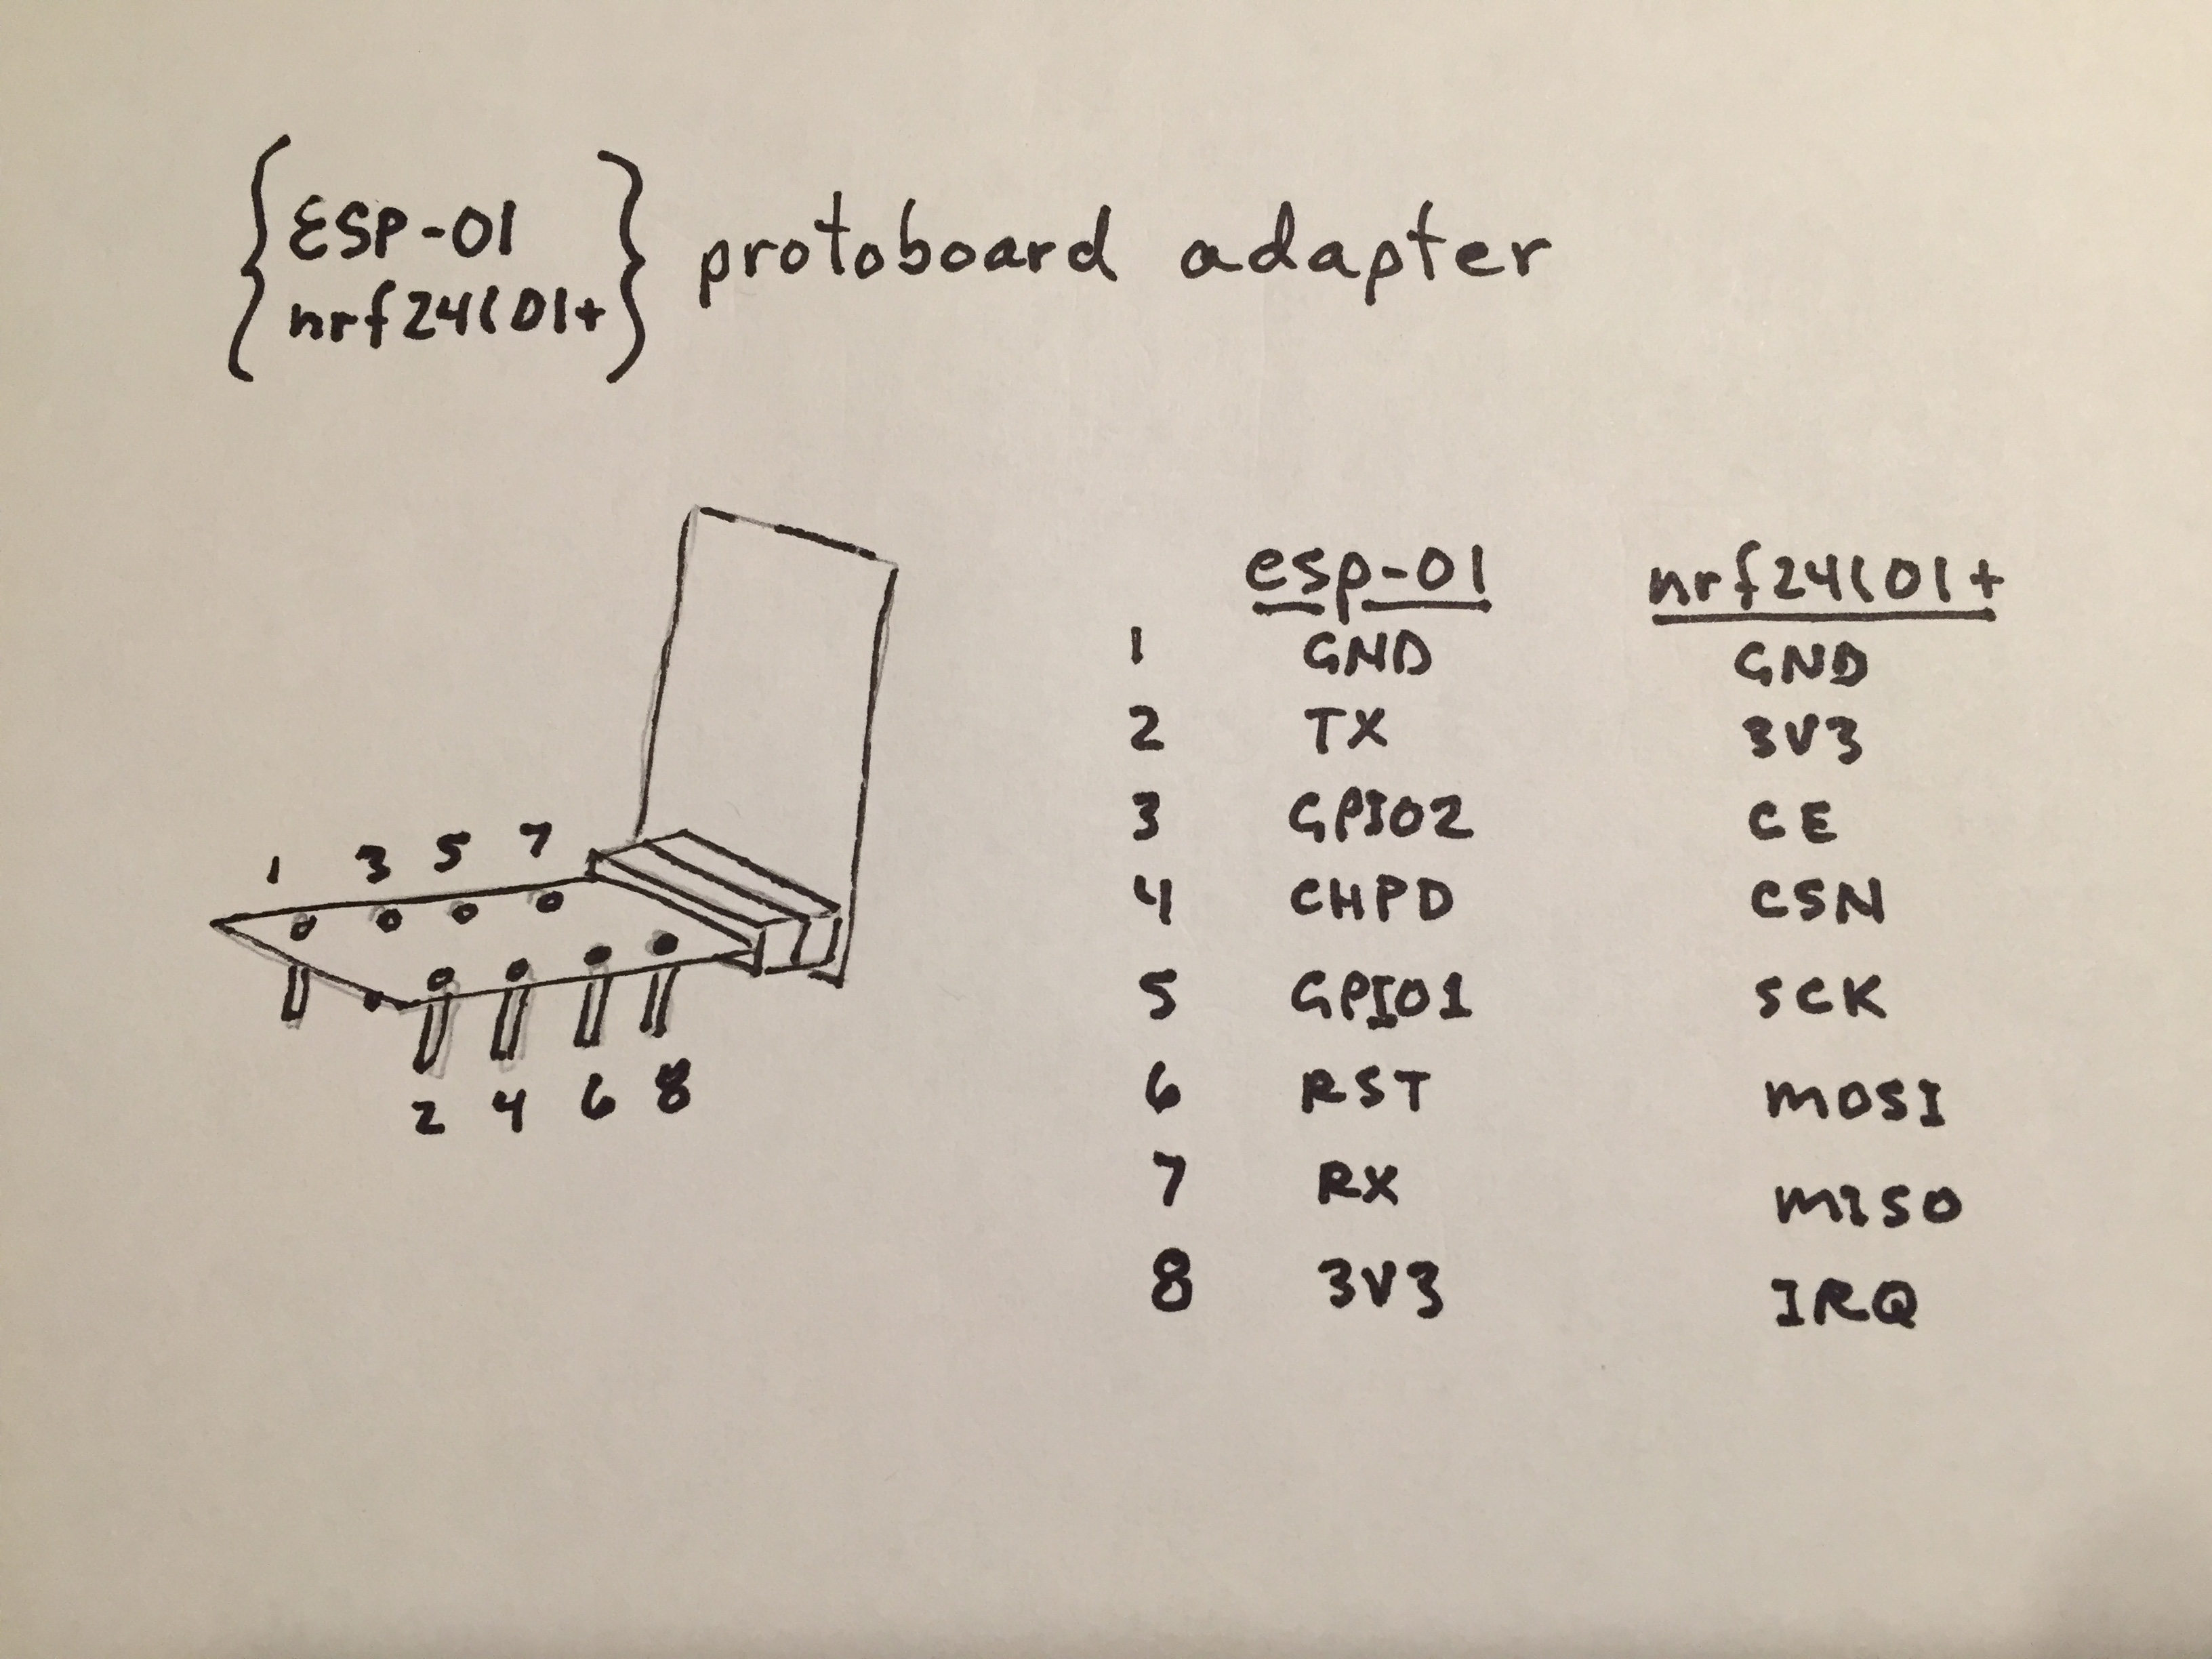 {ESP-01
nrf24l01+} protoboard adapter
1 3 5 7
2 4 6 8
esp-01 nrf24l01+
1 GND GND
2 TX 3V3
3 GPIO2 CE
4 CHPD CSN
5 GPIO1 SCK
6 RST MOSI
7 RX MISO
8 3V3 IRQ